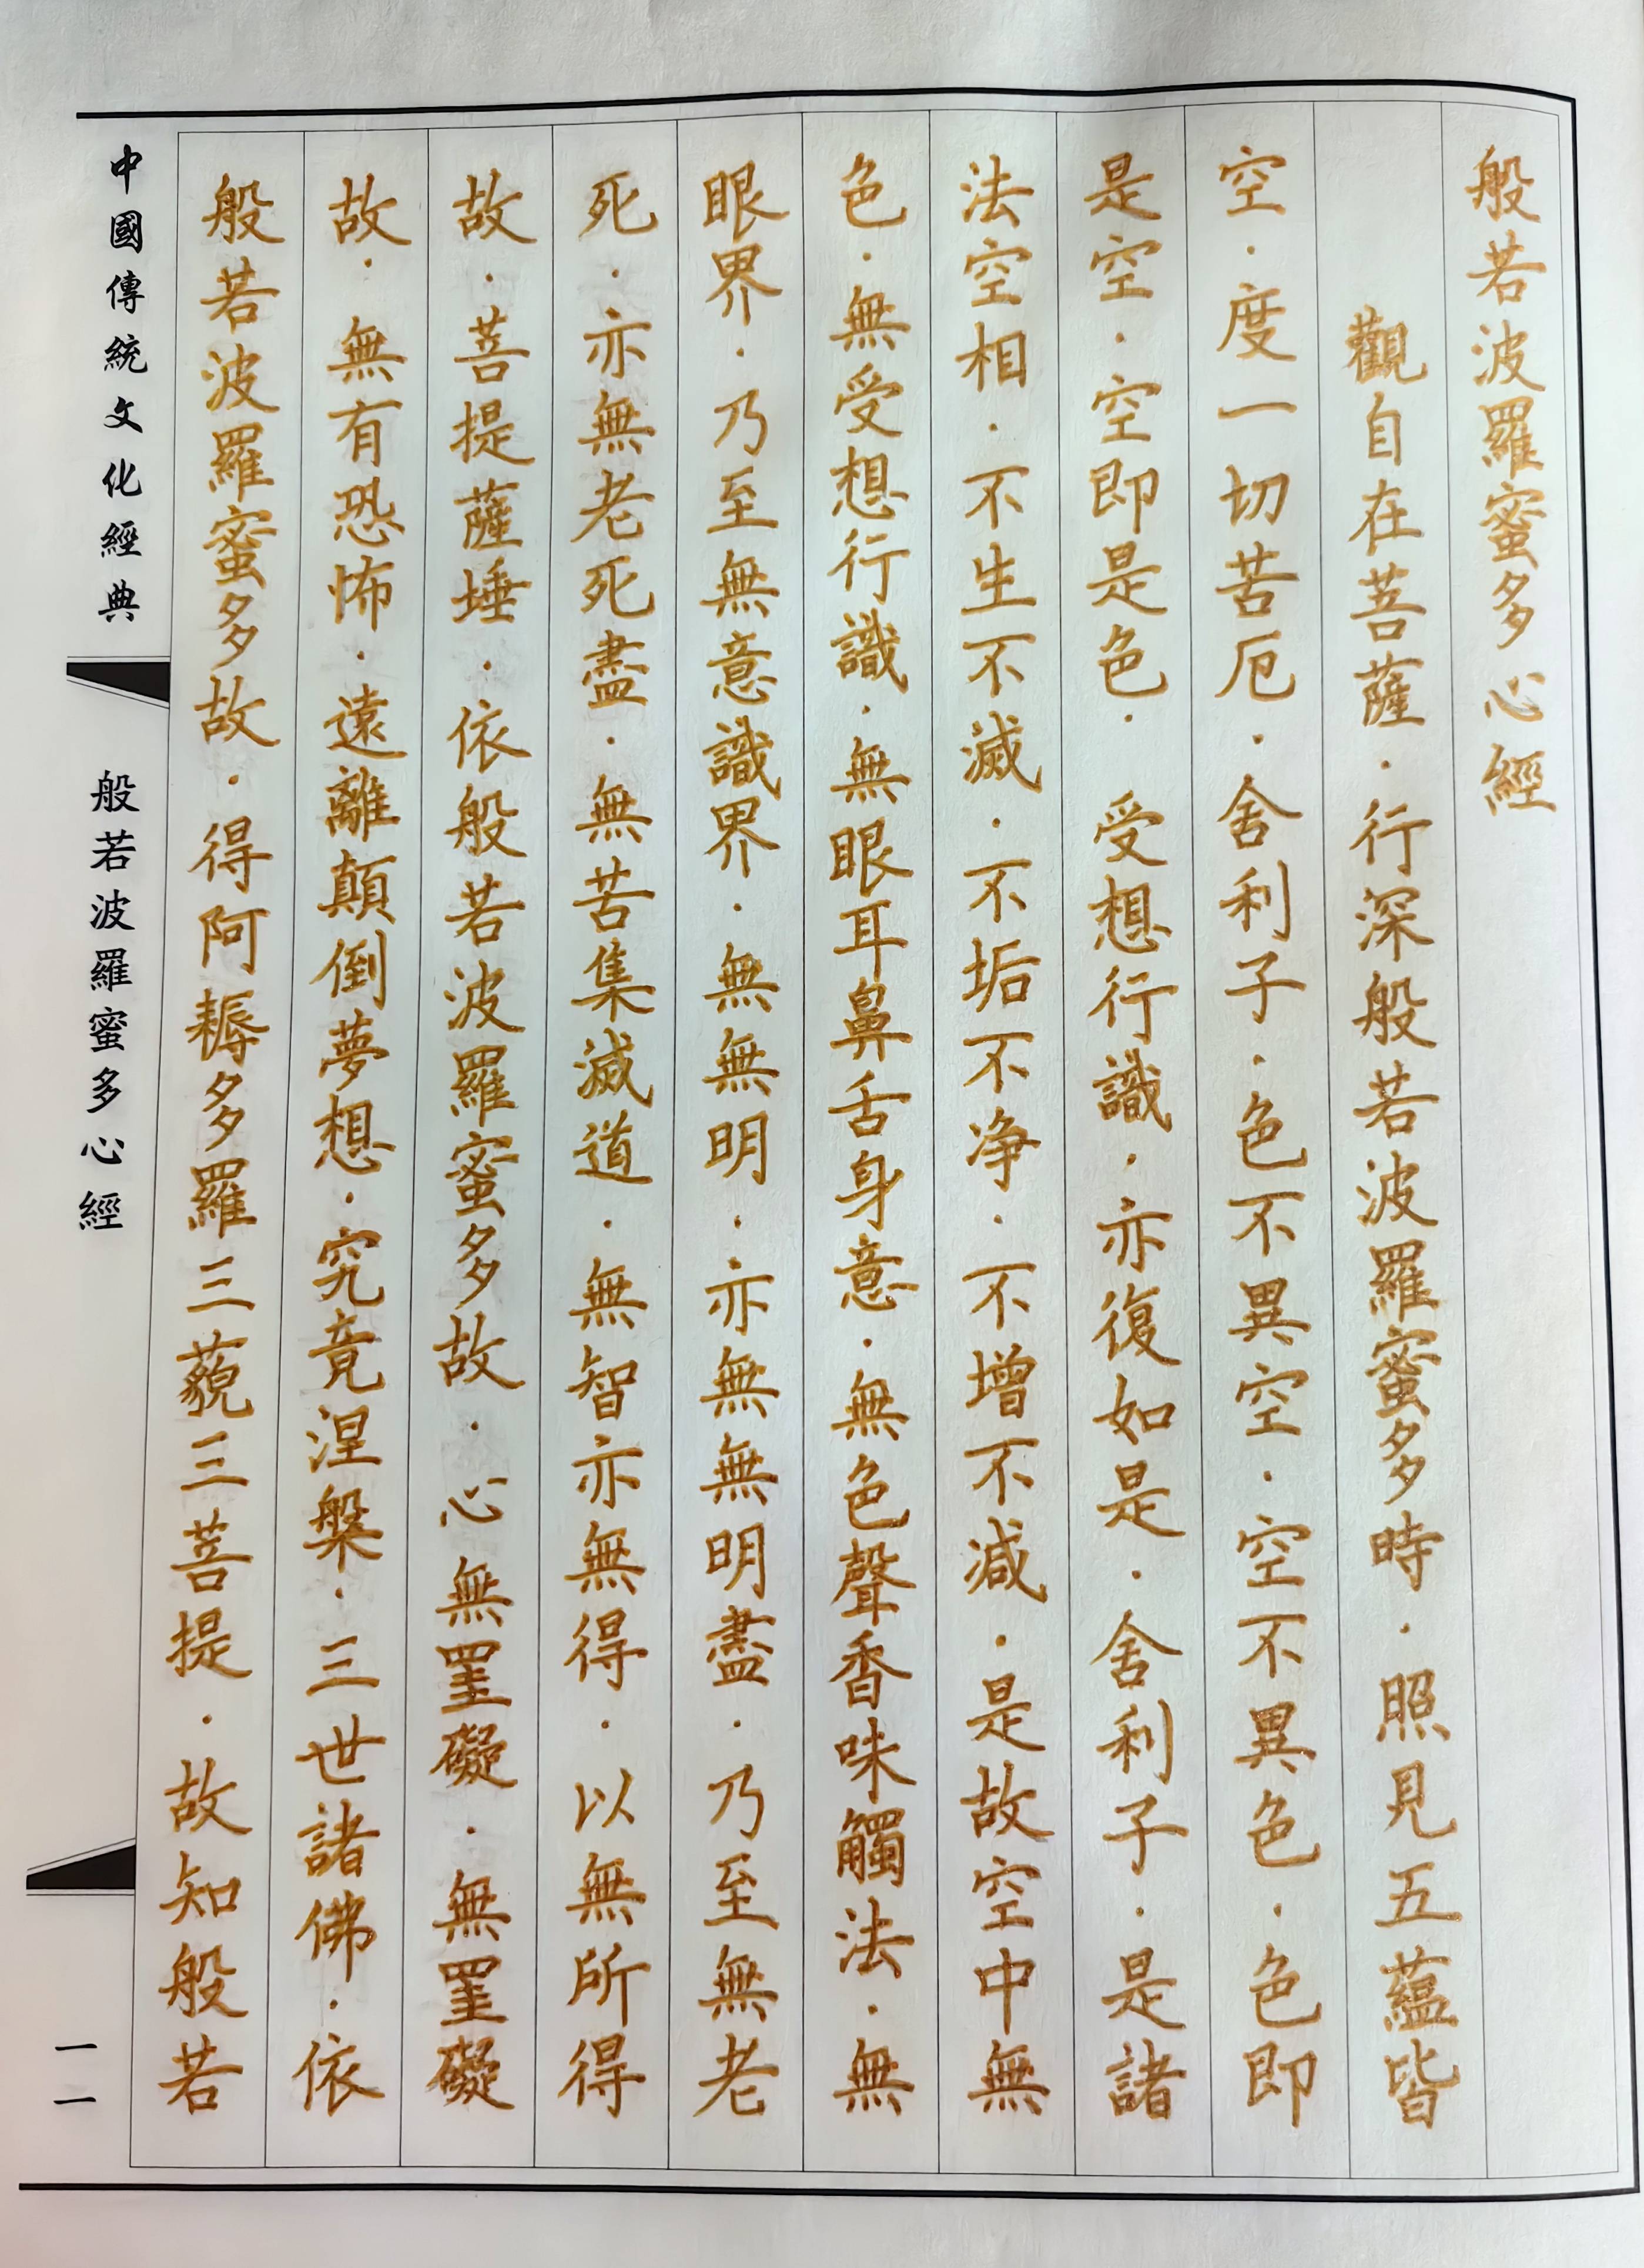 般若波羅蜜多心經
觀自在菩薩·行深般若波羅蜜多時·照見五蘊皆
空·度一切苦厄·舍利子·色不異空·空不異色·色即
是空·空即是色·受想行識·亦復如是·舍利子·是諸
法空相·不生不滅·不垢不净·不增不减·是故空中無
色·無受想行識·無眼耳鼻舌身意·無色聲香味觸法·無
眼界·乃至無意識界·無無明·亦無無明盡·乃至無老
死·亦無老死盡·無苦集滅道·無智亦無得·以無所得
故·菩提薩埵·依般若波羅蜜多故·心無罣礙·無罣礙
故·無有恐怖·遠離顛倒夢想·究竟涅槃·三世諸佛·依
般若波羅蜜多故·得阿耨多羅三藐三菩提·故知般若
中國傳統文化經典
般若波羅蜜多心經
一一